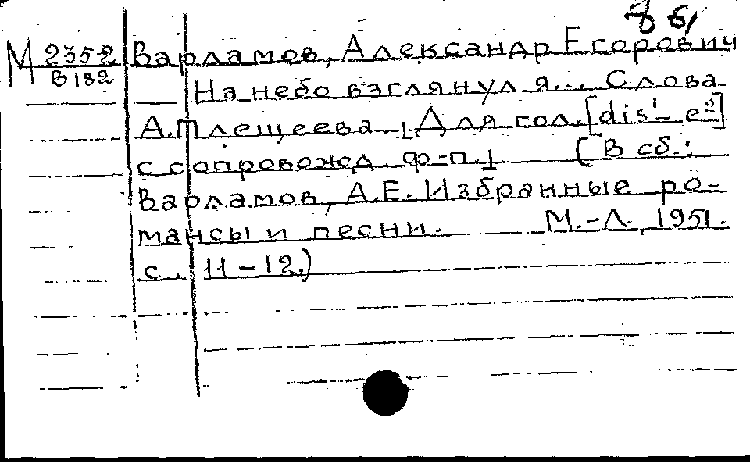 8 б/
М 2352 Варламов, Александр Егорович
В182
На небо взглянул я... Слова
А. Плещеева. [Для гол. [dis¹ – e²]
с сопровожд. ф-п.] (В сб.:
Варламов, А.Е. Избранные ро-
мансы и песни. М.-Л., 1951.
с. 11-12.)